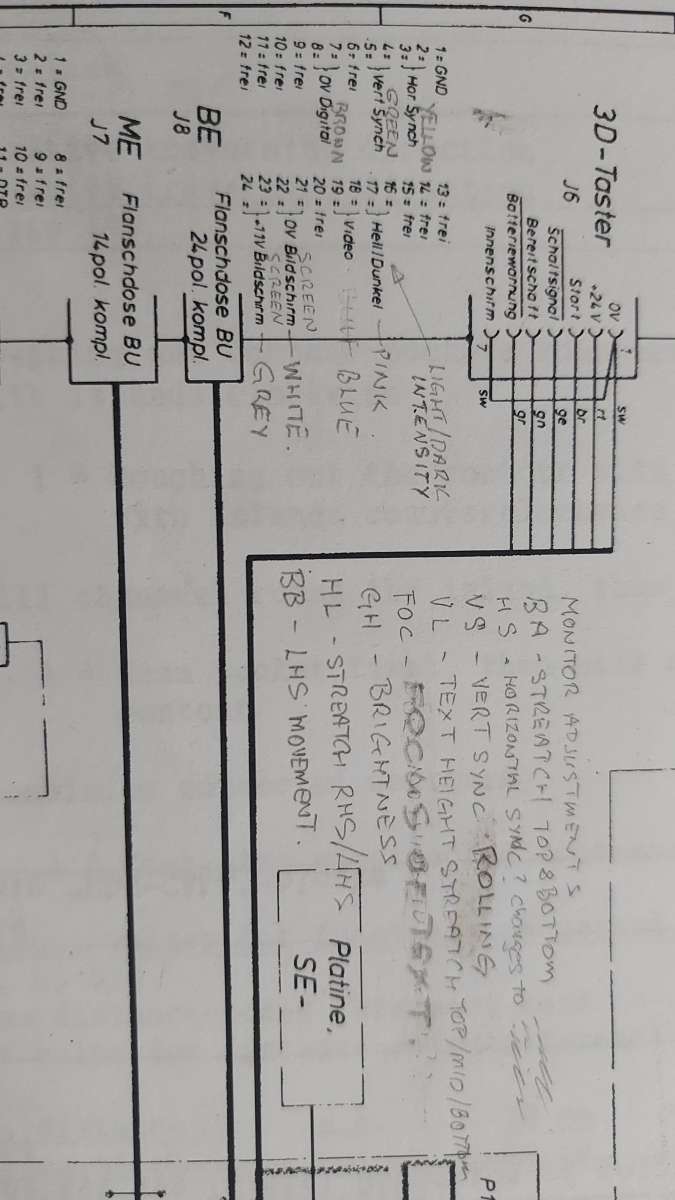 G
F
3D-Taster
J6
0V
+24V
Start
Schaltsignal
Bereitschaft
Batteriewarnung
Innenschirm
1
7
sw
rt
br
ge
gn
gr
sw
1 = GND
2 = } Hor Synch YELLOW
3 =
4 = } Vert Synch GREEN
5 =
6 = frei
7 = } 0V Digital BROWN
8 =
9 = frei
10 = frei
11 = frei
12 = frei
13 = frei
14 = frei
15 = frei
16 = } Hell/Dunkel — PINK
17 =
18 = } Video BLUE
19 =
20 = frei
21 = } 0V Bildschirm — WHITE.
22 = SCREEN
23 = } +11V Bildschirm — GREY
24 = SCREEN
LIGHT/DARK
INTENSITY
BE
J8
Flanschdose BU
24pol. kompl.
ME
J7
Flanschdose BU
14pol. kompl.
1 = GND
2 = frei
3 = frei
8 = frei
9 = frei
10 = frei
MONITOR ADJUSTMENTS
BA - STREATCH TOP & BOTTOM
HS - HORIZONTAL SYNC? changes to
VS - VERT SYNC ROLLING
VL - TEXT HEIGHT STREATCH TOP/MID/BOTTOM
FOC - FOCUS OF TEXT.
GH - BRIGHTNESS
HL - STREATCH RHS/LHS
BB - LHS MOVEMENT.
Platine,
SE-